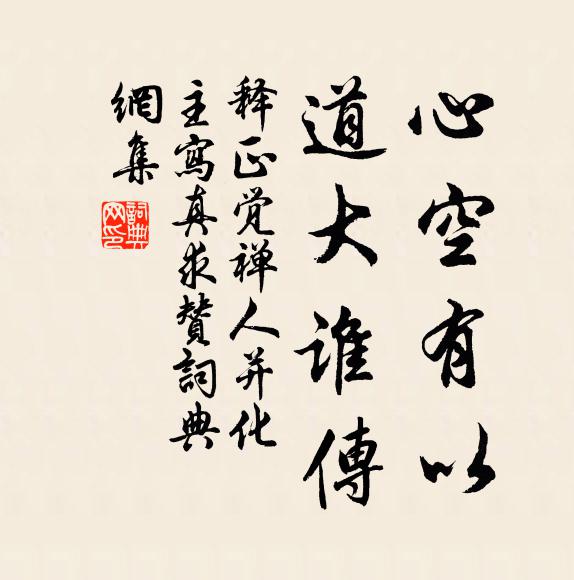 心空有以
道大谁傳
释正觉禅人并化
主寫真求賛詞典
網集
詞典
网印